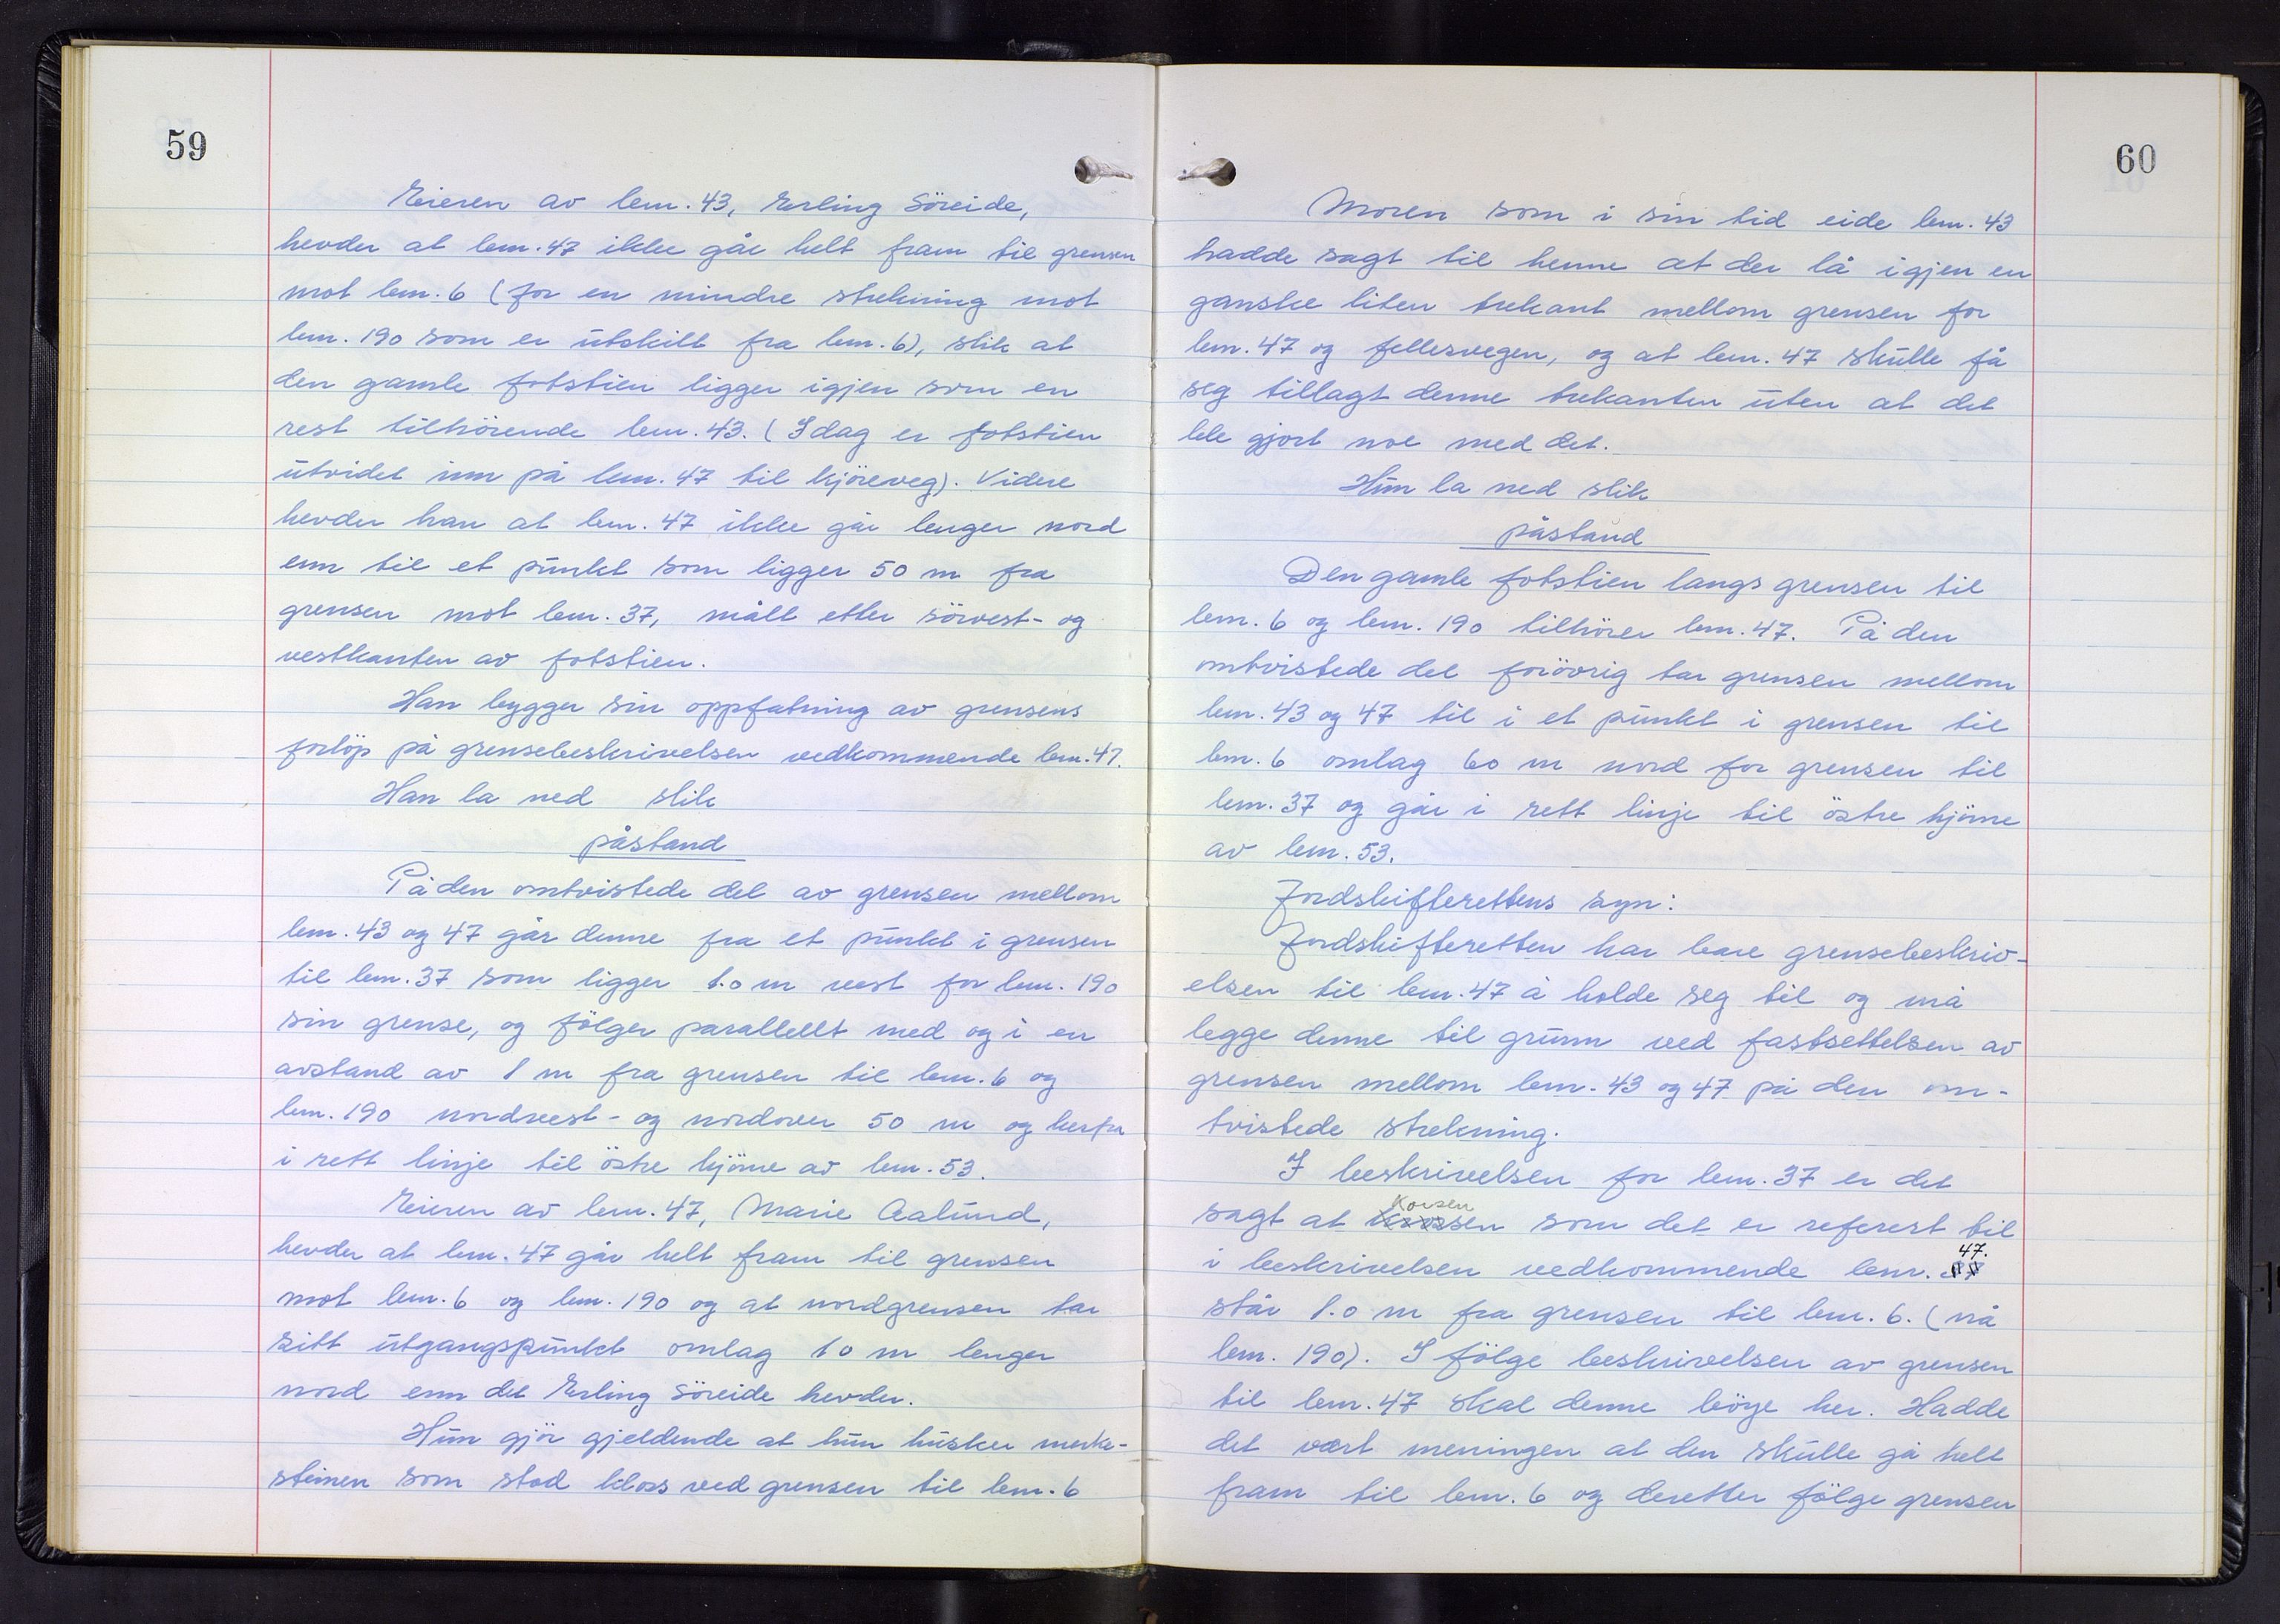 59
Eieren av bem. 43, Erling Söreide,
hevder at bem. 47 ikke går helt fram til grensen
mot bem. 6 (for en mindre strekning mot
bem. 190 som er utskilt fra bem. 6), slik at
den gamle fotstien ligger igjen som en
rest tilhörende bem. 43. (I dag er fotstien
utvidet inn på bem. 47 til kjöreveg). Videre
hevder han at bem. 47 ikke går lenger nord
enn til et punkt som ligger 50 m fra
grensen mot bem. 37, målt etter sörvest- og
vestkanten av fotstien.
Han bygger sin oppfatning av grensens
forlöp på grensebeskrivelsen vedkommende bem. 47.
Han la ned slik
påstand
På den omtvistede del av grensen mellom
bem. 43 og 47 går denne fra et punkt i grensen
til bem. 37 som ligger 1.0 m vest for bem. 190
sin grense, og fölger parallellt med og i en
avstand av 1 m fra grensen til bem. 6 og
bem. 190 nordvest- og nordover 50 m og herfra
i rett linje til östre hjörne av bem. 53.
Eieren av bem. 47, Marie Aalund,
hevder at bem. 47 går helt fram til grensen
mot bem. 6 og bem. 190 og at nordgrensen tar
sitt utgangspunkt omlag 10 m lenger
nord enn det Erling Söreide hevder.
Hun gjör gjeldende at hun husker merke-
steinen som stod kloss ved grensen til bem. 6
60
Moren som i sin tid eide bem. 43
hadde sagt til henne at der lå igjen en
ganske liten trekant mellom grensen for
bem. 47 og fellesvegen, og at bem. 47 skulle få
seg tillagt denne trekanten uten at det
ble gjort noe med det.
Hun la ned slik
påstand
Den gamle fotstien langs grensen til
bem. 6 og bem. 190 tilhörer bem. 47. På den
omtvistede del forövrig tar grensen mellom
bem. 43 og 47 til i et punkt i grensen til
bem. 6 omlag 60 m nord for grensen til
bem. 37 og går i rett linje til östre hjörne
av bem. 53.
Jordskifterettens syn:
Jordskifteretten har bare grensebeskriv-
elsen til bem. 47 å holde seg til og må
legge denne til grunn ved fastsettelsen av
grensen mellom bem. 43 og 47 på den om-
tvistede strekning.
I beskrivelsen for bem. 37 er det
Korsen
sagt at krossen som det er referert til
47.
i beskrivelsen vedkommende bem. 37
står 1.0 m fra grensen til bem. 6. (nå
bem. 190). I fölge beskrivelsen av grensen
til bem. 47 skal denne böye her. Hadde
det vært meningen at den skulle gå helt
fram til bem. 6 og deretter fölge grensen